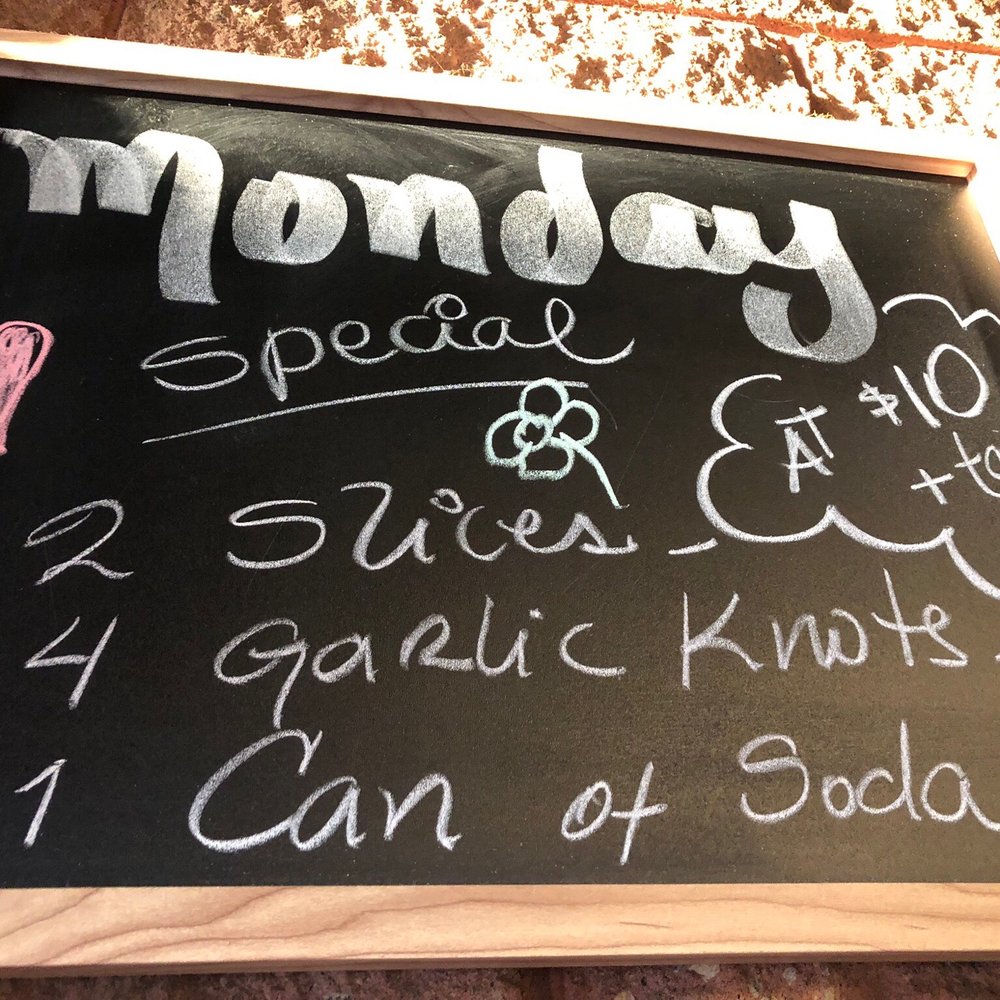 Monday
Special
AT $10
2 Slices
4 Garlic Knots
1 Can of Soda